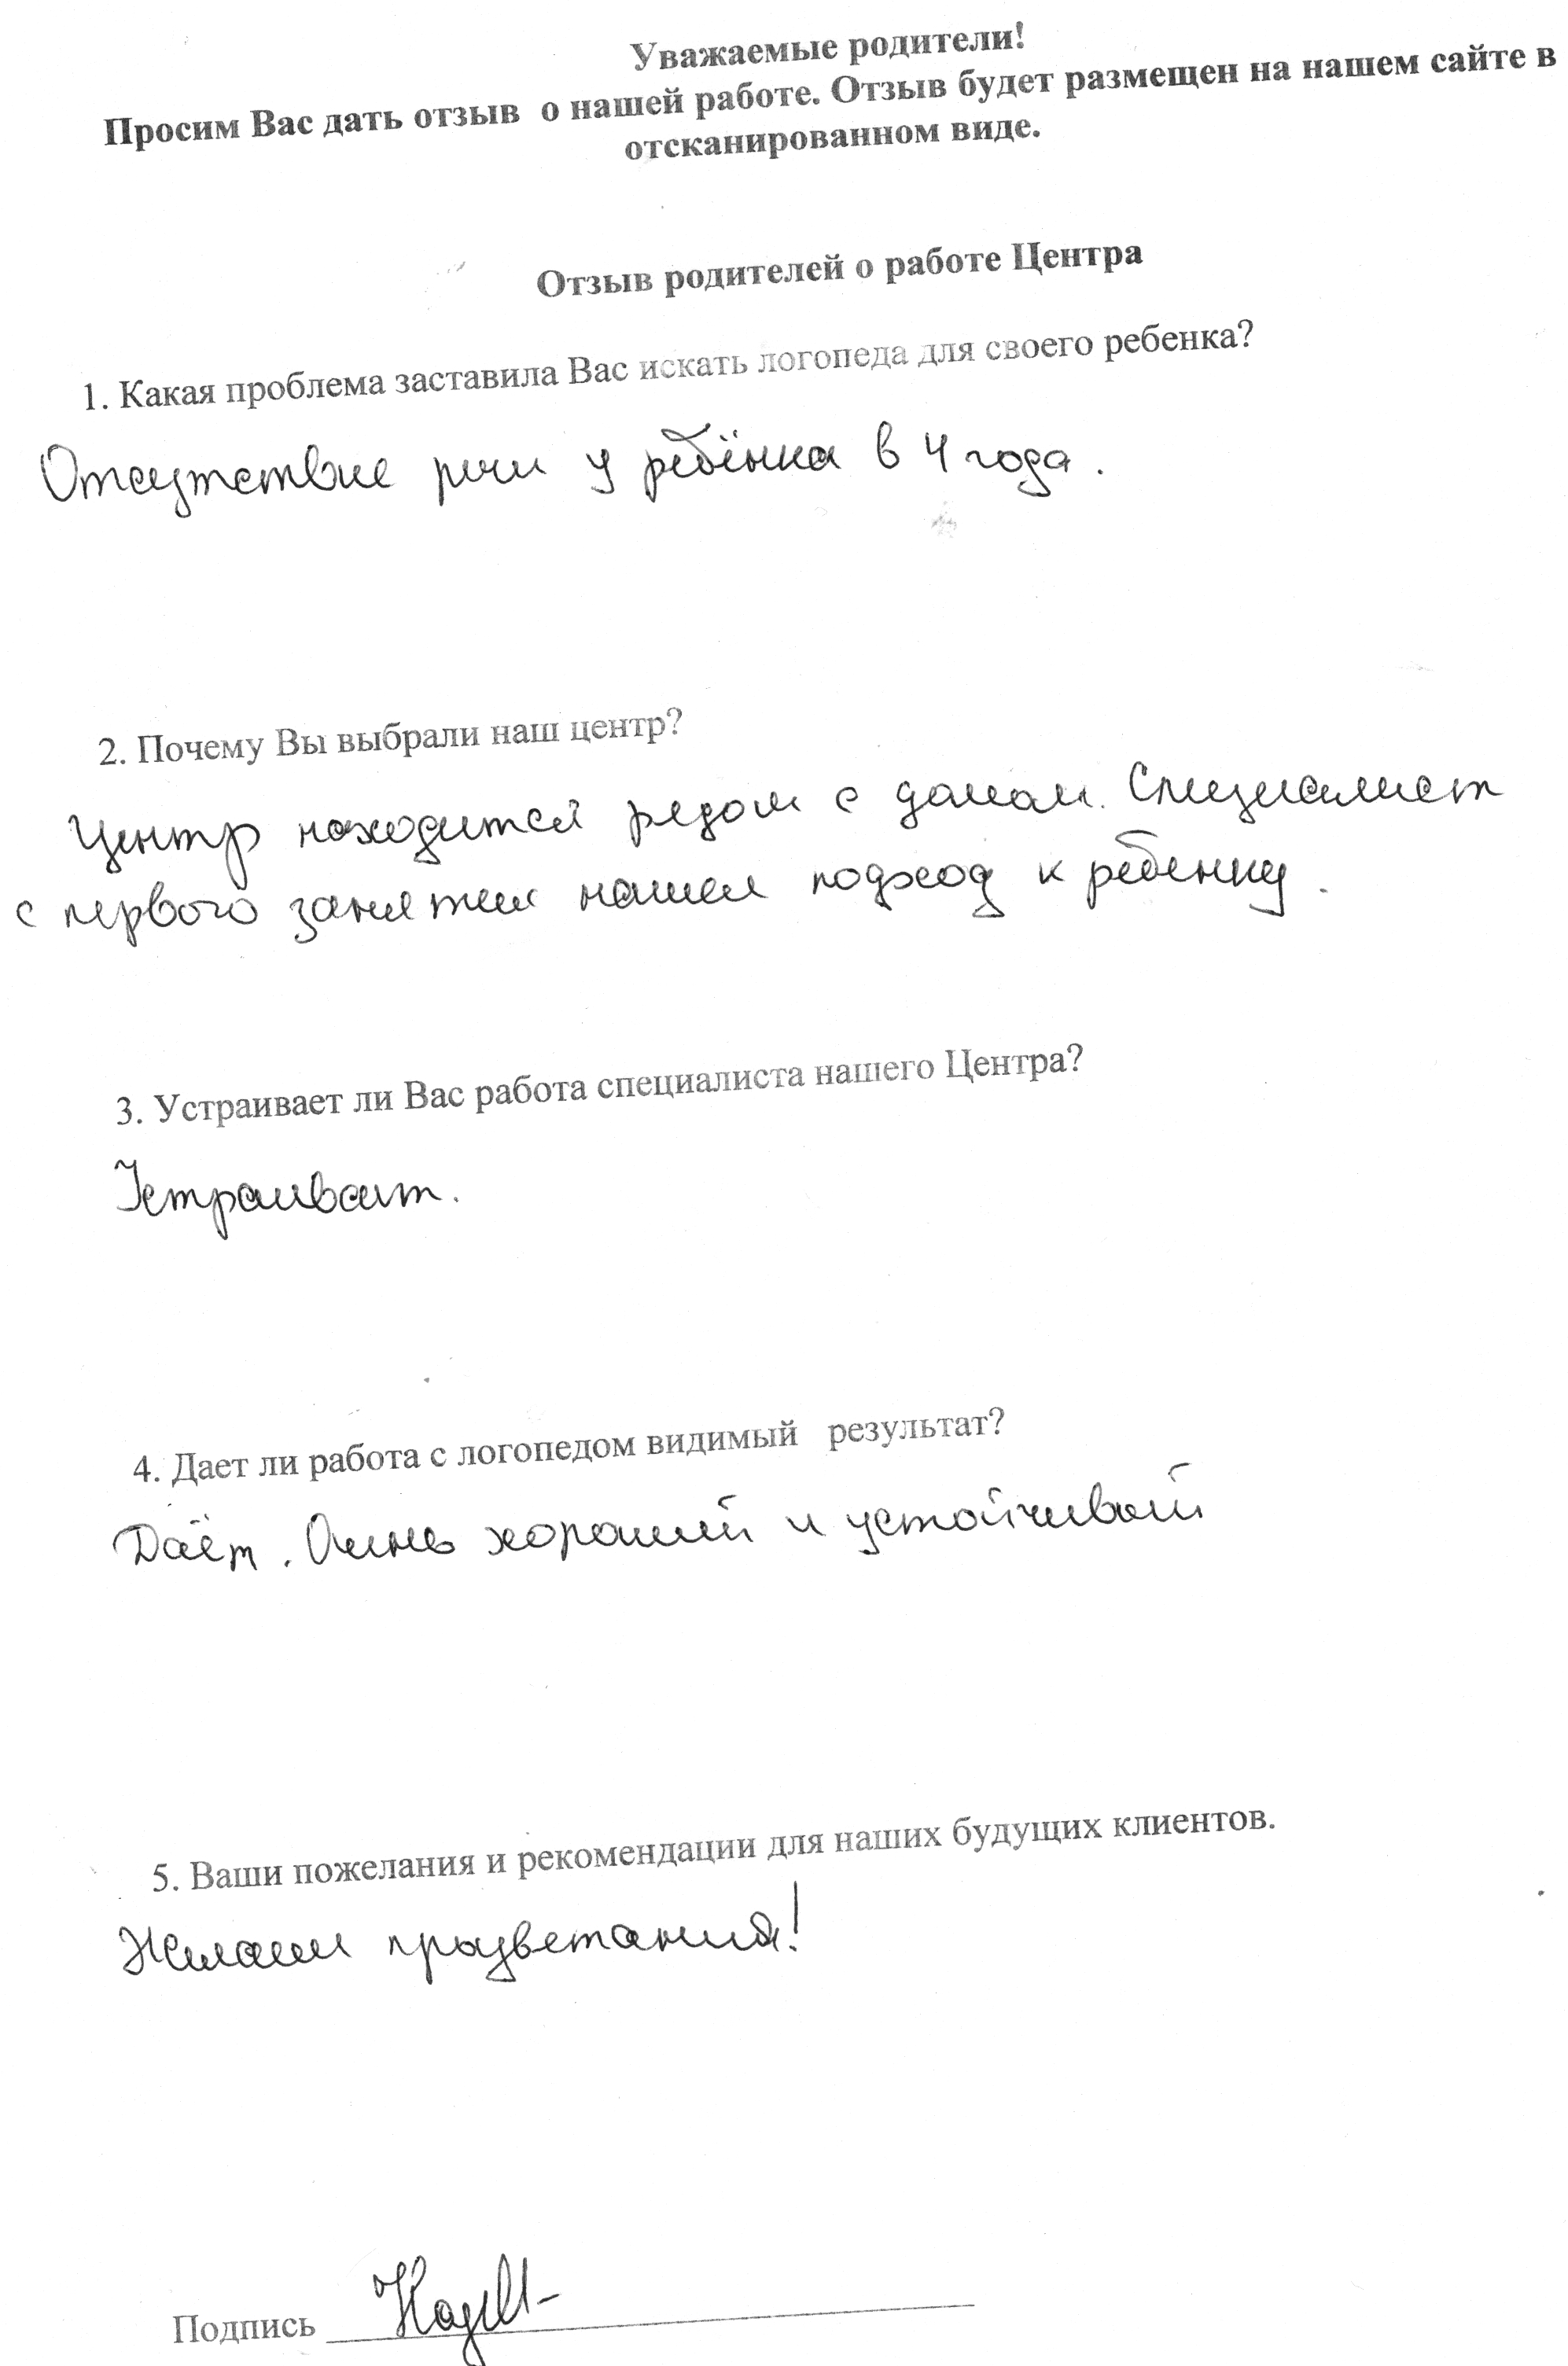 Уважаемые родители!
Просим Вас дать отзыв о нашей работе. Отзыв будет размещен на нашем сайте в
отсканированном виде.
Отзыв родителей о работе Центра
1. Какая проблема заставила Вас искать логопеда для своего ребенка?
Отсутствие речи у ребёнка в 4 года.
2. Почему Вы выбрали наш центр?
Центр находится рядом с домом. Специалист
с первого занятия нашел подход к ребенку.
3. Устраивает ли Вас работа специалиста нашего Центра?
Устраивает.
4. Дает ли работа с логопедом видимый результат?
Даёт. Очень хороший и устойчивый
5. Ваши пожелания и рекомендации для наших будущих клиентов.
Желаем процветания!
Подпись